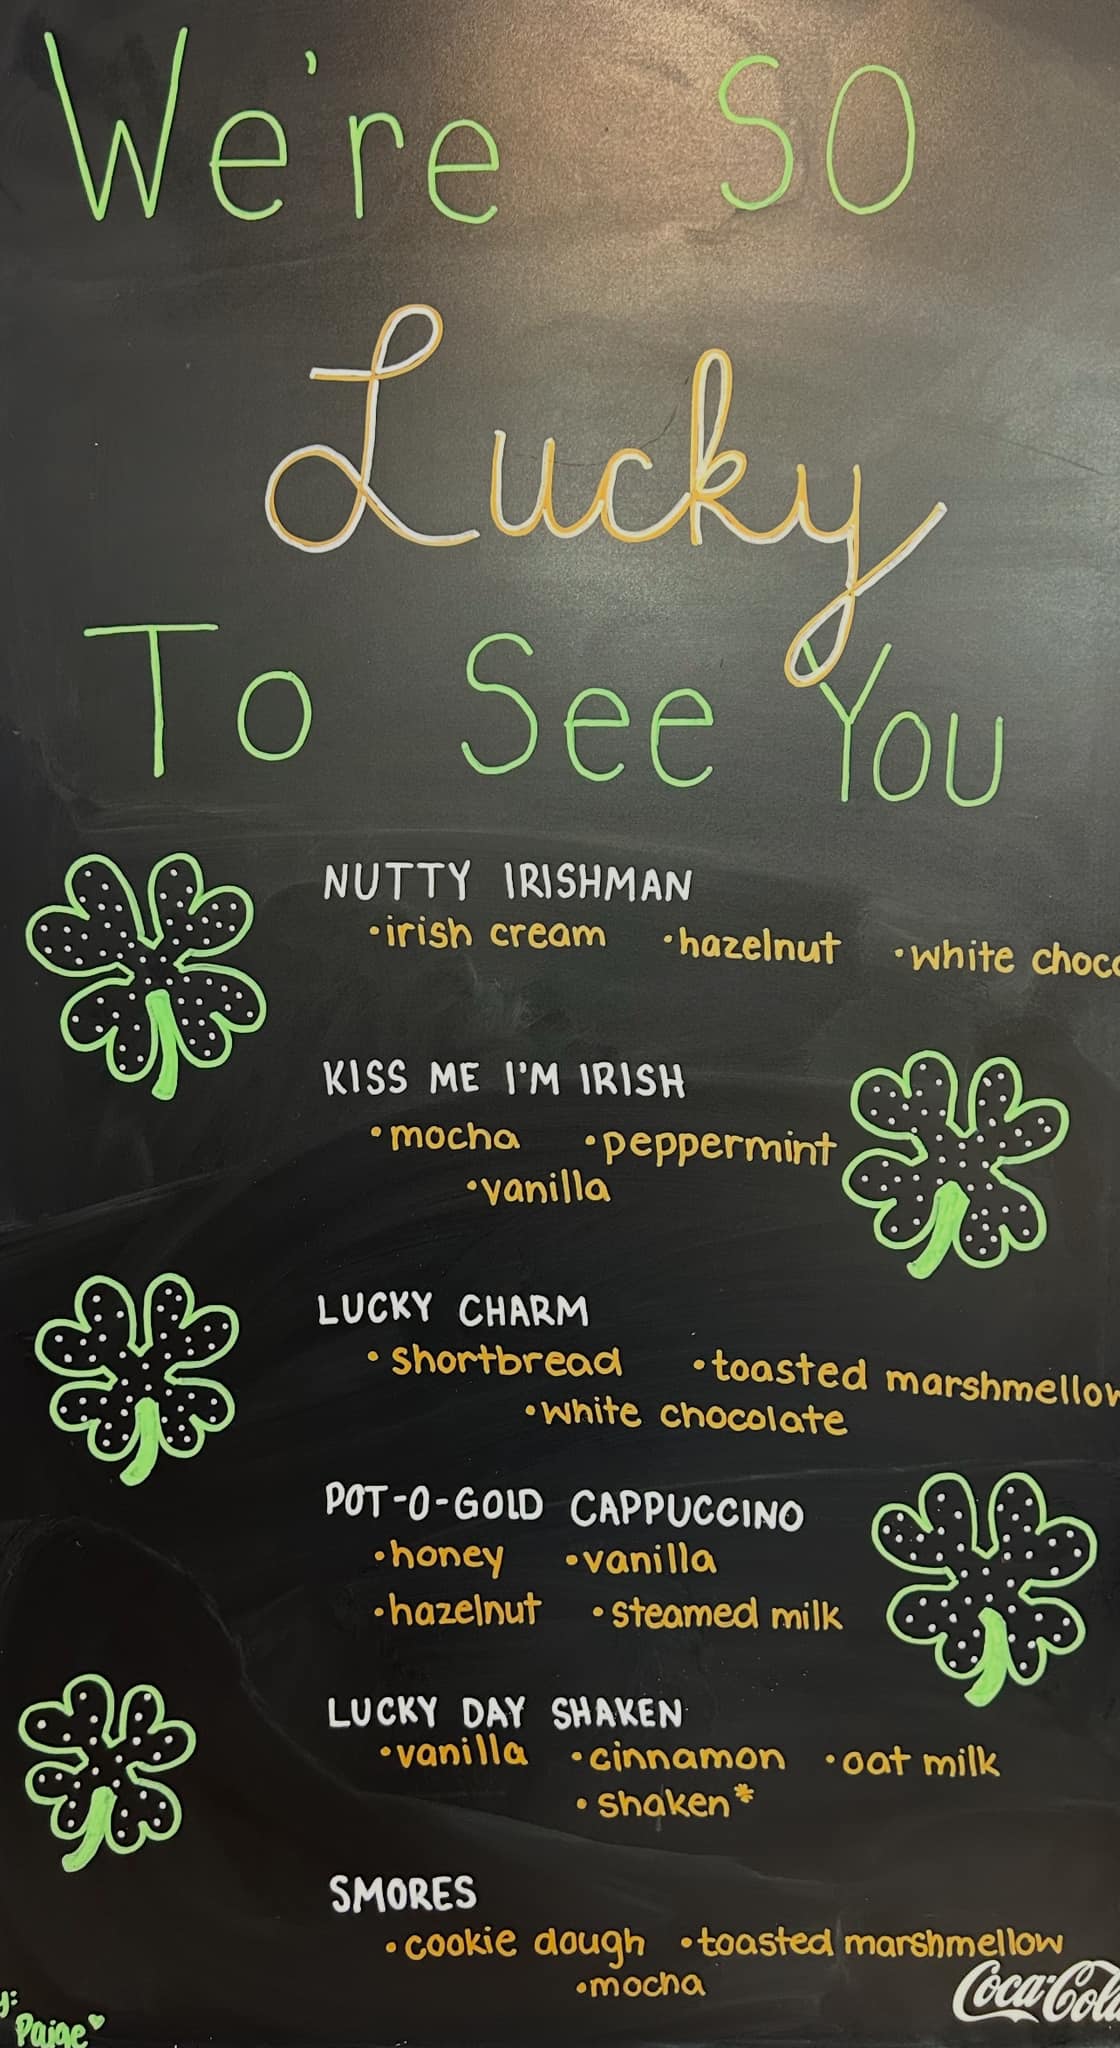 We're SO
Lucky
To See You
NUTTY IRISHMAN
•irish cream •hazelnut •white choco
KISS ME I'M IRISH
•mocha •peppermint
•vanilla
LUCKY CHARM
•shortbread •toasted marshmellow
•white chocolate
POT-O-GOLD CAPPUCCINO
•honey •vanilla
•hazelnut •steamed milk
LUCKY DAY SHAKEN
•vanilla •cinnamon •oat milk
•shaken*
SMORES
•cookie dough •toasted marshmellow
•mocha
y:
Paige♥
Coca-Cola